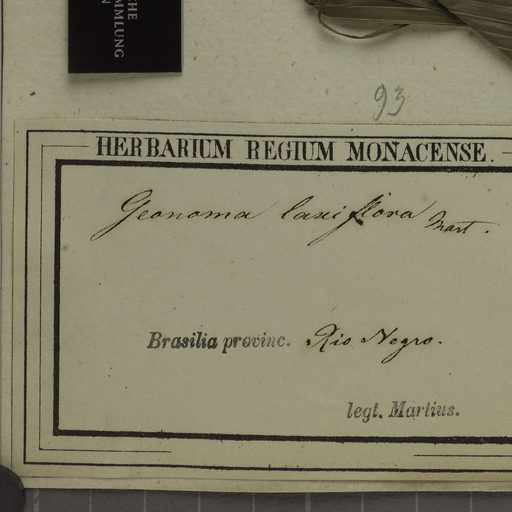 CHE
MMLUNG
N
93
HERBARIUM REGIUM MONACENSE.
Geonoma laxiflora Mart.
Brasilia provinc. Rio Negro.
legt. Martius.